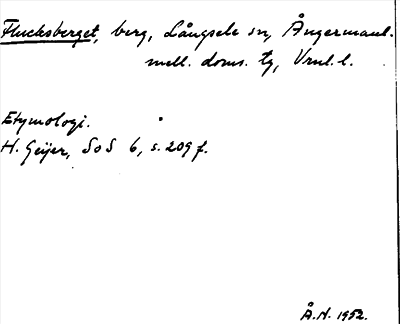 Flucksberget, berg, Långsele sn, Ångermanl.
mell. doms. tg, Vrnl. l.
Etymologi.
H. Geijer, SoS 6, s. 209 f.
Å.N. 1952.